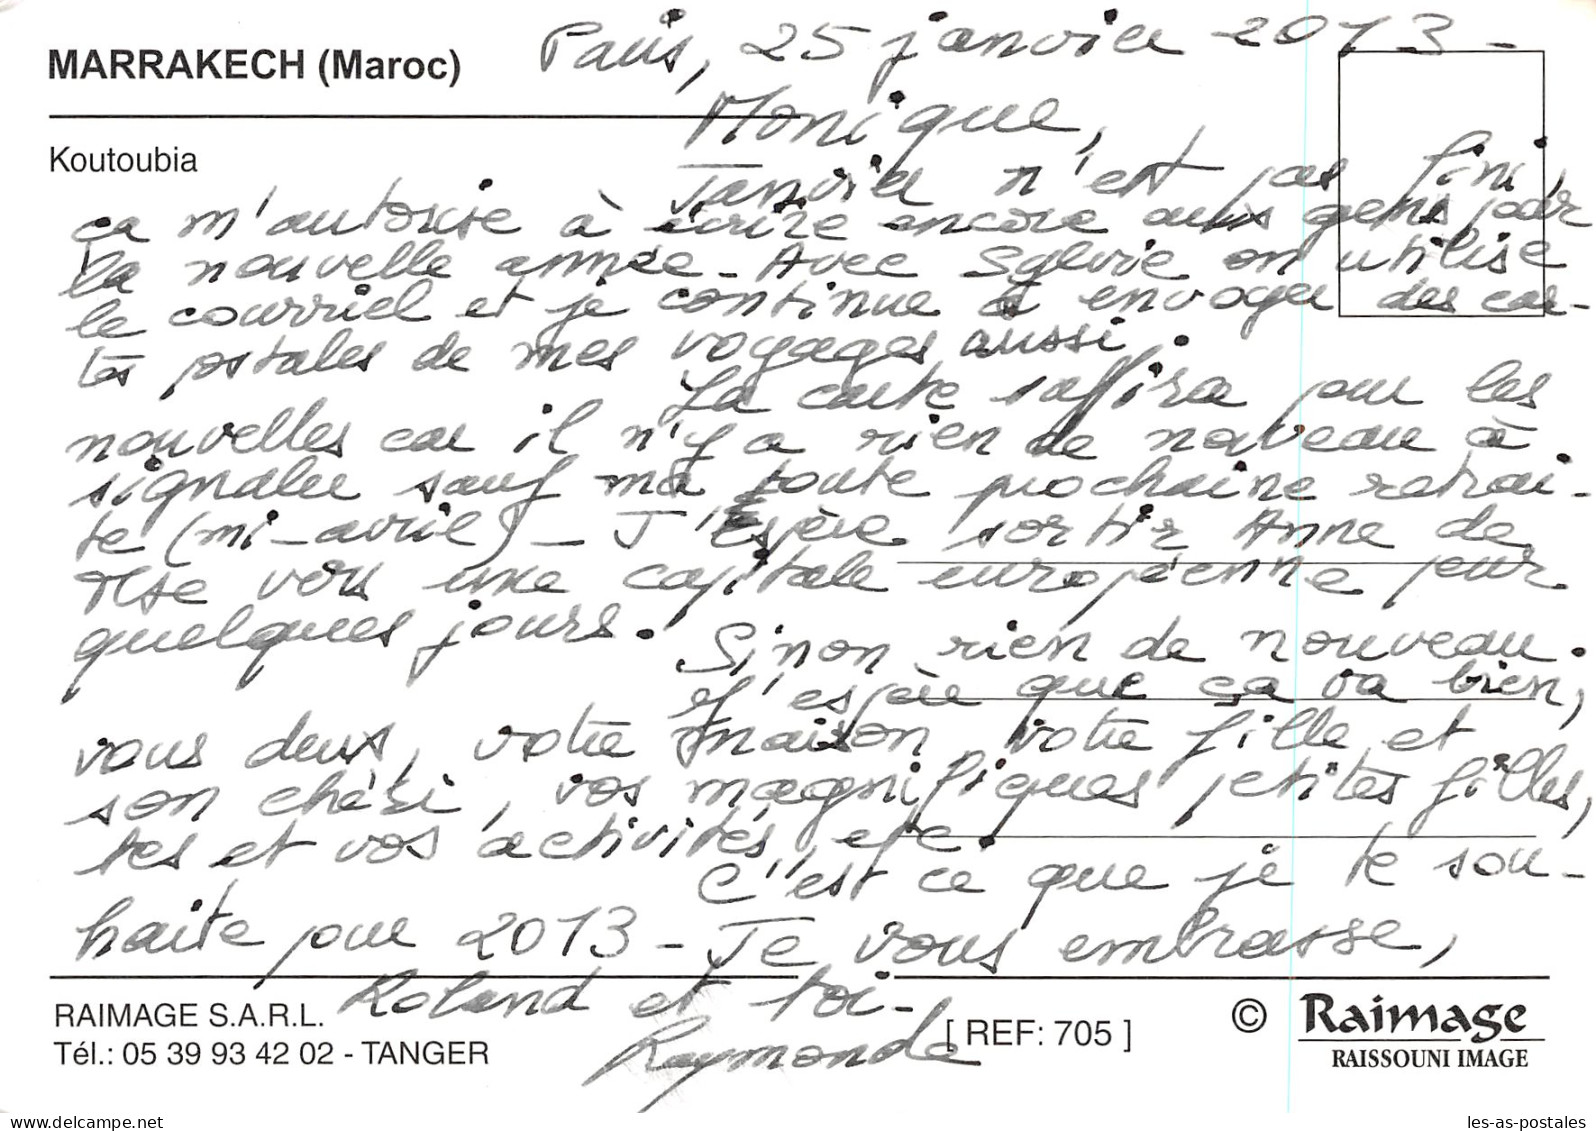 MARRAKECH (Maroc)
Koutoubia
Paris, 25 janvier 2013 -
Monique,
Janvier n'est pas fini,
ça m'autorise à écrire encore aux gens pour
la nouvelle année - Avec Sylvie on utilise
le courriel et je continue à envoyer des car-
tes postales de mes voyages aussi.
La carte suffira pour les
nouvelles car il n'y a rien de nouveau à
signaler sauf ma toute prochaine retrai-
te (mi-avril) - J'espère sortir Anne de
vers une capitale européenne pour
quelques jours.
Sinon rien de nouveau.
J'espère que ça va bien,
vous deux, votre maison, votre fille et
son chéri, vos magnifiques petites filles,
tes et vos activités, etc.
C'est ce que je te sou-
haite pour 2013 - Je vous embrasse,
Roland et toi -
Raymonde
RAIMAGE S.A.R.L.
Tél.: 05 39 93 42 02 - TANGER
[ REF: 705 ]
© Raimage
RAISSOUNI IMAGE
les-as-postales